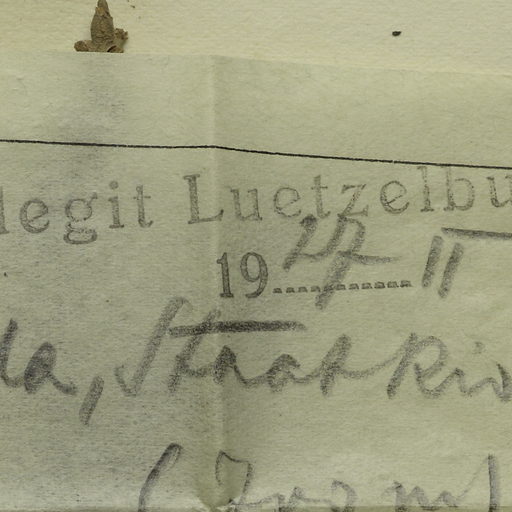 legit Luetzelbu
1927 II
da, Staat Rio